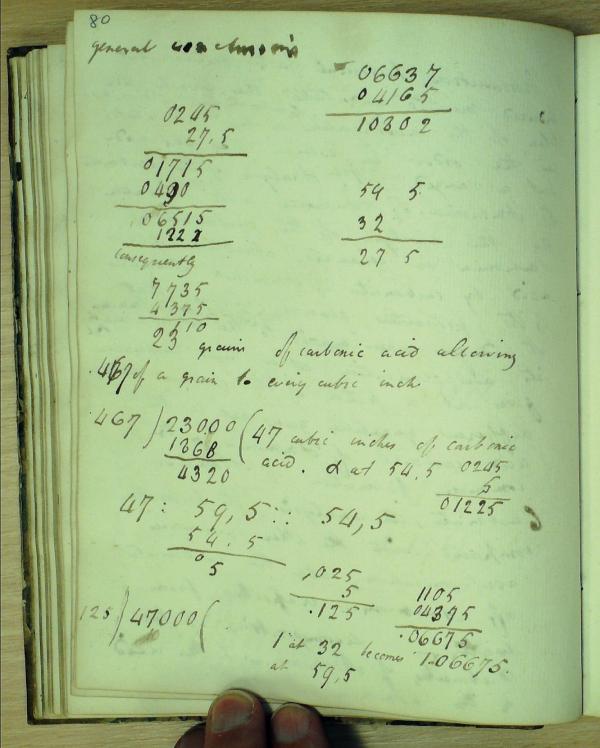 80
general conclusions
06637
04165
10802
0245
27.5
01715
0490
06515
1222
consequently
54 5
32
27 5
7735
4375
2110
23 grains of carbonic acid allowing
.467 of a grain to every cubic inch
467 ) 23000 ( 47 cubic inches of carbonic
1868
4320
acid. & at 54.5
0245
5
01225
47 : 59,5 :: 54,5
54.5
0 5
,025
5
.125
1105
04375
.06675
125 ) 47000 (
1 at 32 becomes 1.06675.
at 59,5